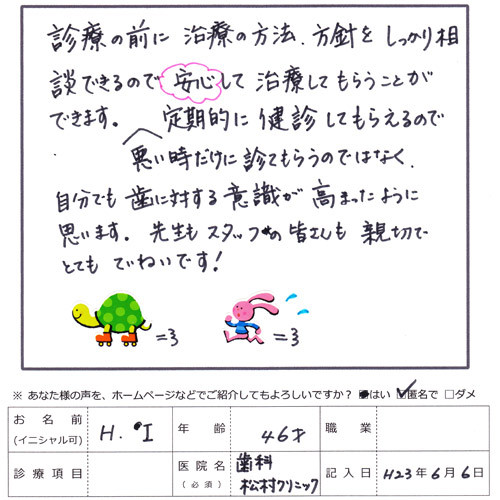 診療の前に 治療の方法、方針を しっかり相
談できるので 安心して 治療してもらうことが
できます。 定期的に健診してもらえるので
悪い時だけに 診てもらうのではなく、
自分でも 歯に対する 意識が 高まったように
思います。 先生も スタッフの 皆さんも 親切で
とても ていねいです!
=3 =3
※ あなた様の声を、ホームページなどでご紹介してもよろしいですか? はい 匿名で □ダメ
お名前 (イニシャル可) H. I 年齢 46才 職業
診療項目 医院名 (必須) 歯科 松村クリニック 記入日 H23年6月6日